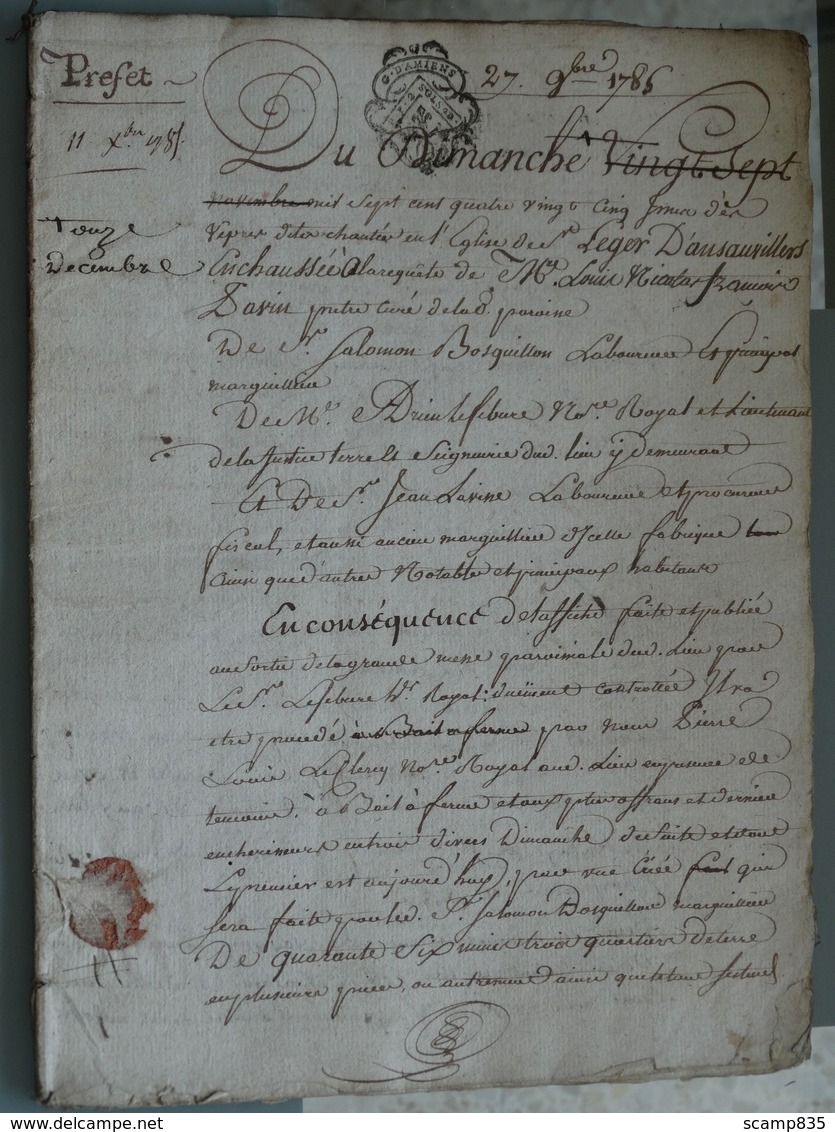 Prefet
27. 9bre 1785
11 Xbre 1785
G. D'AMIENS
Du Dimanche Vingt Sept
novembre mil Sept cent quatre vingt Cinq
onze
decembre
Vepres dites chantées en l'Eglise de St. Leger D'ansauvillers
En chaussée a la requête de Me. Louis Nicolas francois
Davin pretre curé de lad. paroisse
De Sr. Salomon Bosquillon Laboureur et principal
marguillier
De Me. Adrien Lefebure Nore. Royal et Lieutenant
de la Justice terre et Seigneurie dud. lieu y demeurant
Et De Sr. Jean Lavine Laboureur et procureur
fiscal, et aussi ancien marguillier d'icelle fabrique
ainsi que d'autres Notable et principaux habitans
En conséquence de l'affiche faite et publiée
au Sortir de la grande messe paroissiale dud. Lieu par
Le Sr. Lefebure Nre. Royal duëment controllée Il va
etre procédé a Bail a ferme par nous Pierre
Louis LeClercq Nore. Royal aud. Lieu en presence de
temoins. à Bail à ferme et aux plus offrans et dernier
encherisseurs en trois divers Dimanche de Suite et dont
Le premier est aujourd'huy, par une Criée qui
Sera faite par led. Sr. Salomon Bosquillon marguillier
De quarante Six mines trois quartiers de terre
en plusieurs pieces, ou autrement ainsi que le tout
scamp835